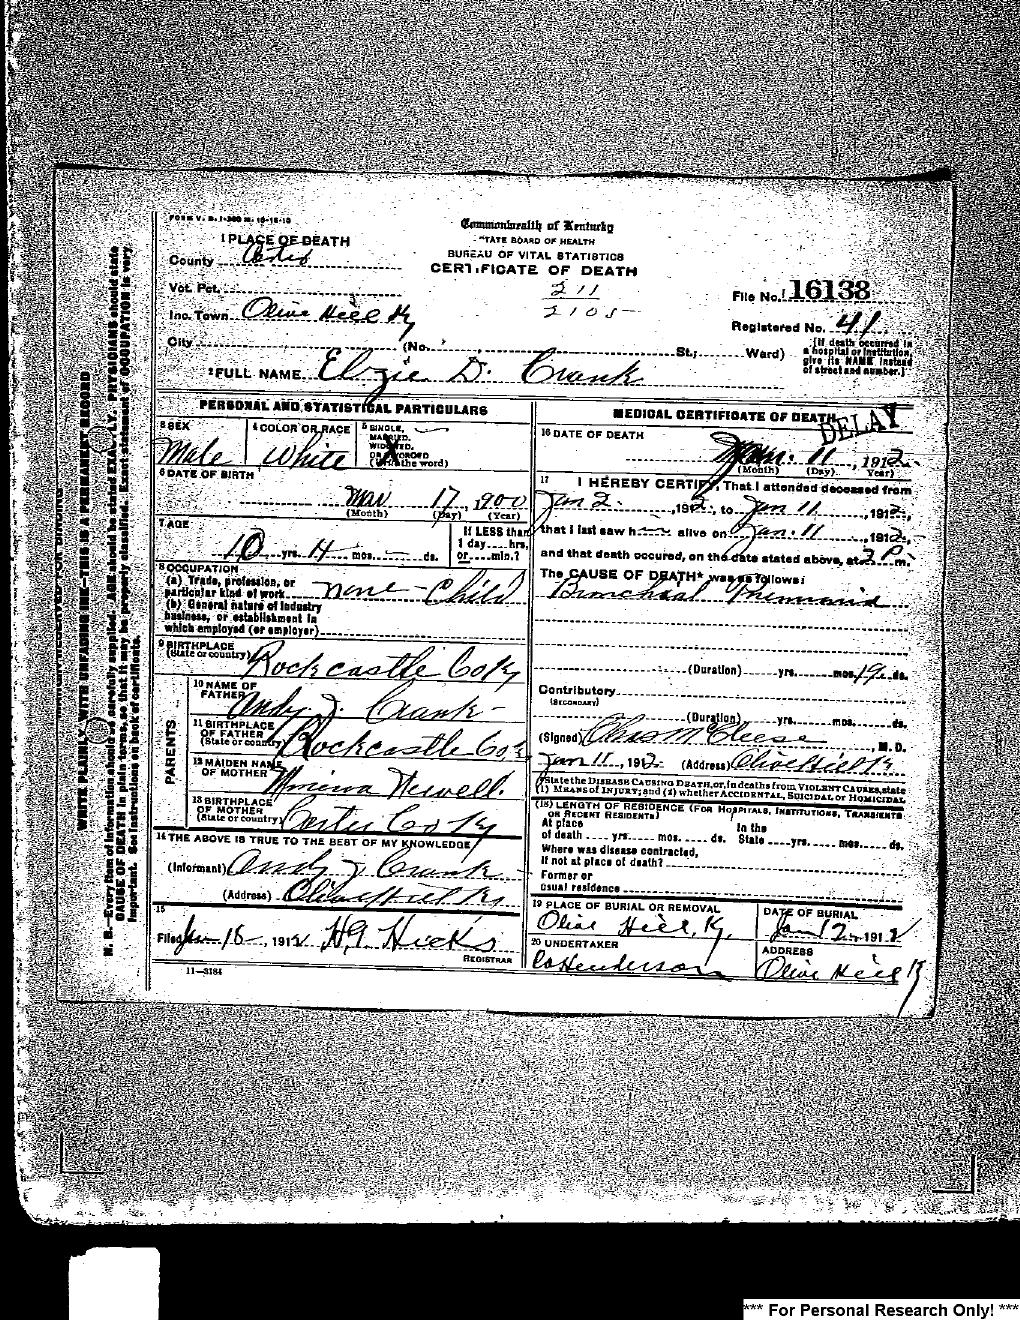 FORM V. S. 1-300 M. 10-18-10
Commonwealth of Kentucky
STATE BOARD OF HEALTH
BUREAU OF VITAL STATISTICS
CERTIFICATE OF DEATH
1 PLACE OF DEATH
County Carter
Vot. Pct.
Inc. Town Olive Hill Ky
City (No. St.; Ward)
211
2105
File No. 16138
Registered No. 41
(If death occurred in a hospital or institution, give its NAME instead of street and number.)
2 FULL NAME Elzie D. Crank
PERSONAL AND STATISTICAL PARTICULARS
3 SEX Male
4 COLOR OR RACE White
5 SINGLE, MARRIED, WIDOWED, OR DIVORCED (Write the word)
6 DATE OF BIRTH
Mar 17, 1900
(Month) (Day) (Year)
7 AGE
10 yrs. 4 mos. ds.
If LESS than 1 day hrs. or min.?
8 OCCUPATION
(a) Trade, profession, or particular kind of work none - Child
(b) General nature of industry business, or establishment in which employed (or employer)
9 BIRTHPLACE (State or country) Rockcastle Co Ky
PARENTS
10 NAME OF FATHER Andy J. Crank
11 BIRTHPLACE OF FATHER (State or country) Rockcastle Co Ky
12 MAIDEN NAME OF MOTHER Minerva Newell.
13 BIRTHPLACE OF MOTHER (State or country) Carter Co Ky
14 THE ABOVE IS TRUE TO THE BEST OF MY KNOWLEDGE
(Informant) Andy J Crank
(Address) Olive Hill Ky
15
Filed Jan 18, 1912 H.G. Hicks
REGISTRAR
11-3184
MEDICAL CERTIFICATE OF DEATH
DELAY
16 DATE OF DEATH
Jan. 11, 1912
(Month) (Day) Year)
17 I HEREBY CERTIFY, That I attended deceased from
Jan 2, 1912, to Jan 11, 1912,
that I last saw h alive on Jan. 11, 1912,
and that death occured, on the date stated above, at 2 P. m.
The CAUSE OF DEATH* was as follows:
Bronchial Pneumonia
(Duration) yrs. mos. 19 ds.
Contributory
(SECONDARY)
(Duration) yrs. mos. ds.
(Signed) Chas McCleese M.D.
Jan 11, 1912 (Address) Olive Hill Ky
*State the DISEASE CAUSING DEATH, or, in deaths from VIOLENT CAUSES, state
(1) MEANS of INJURY; and (2) whether ACCIDENTAL, SUICIDAL or HOMICIDAL
(18) LENGTH OF RESIDENCE (FOR HOSPITALS, INSTITUTIONS, TRANSIENTS OR RECENT RESIDENTS)
At place of death yrs. mos. ds. In the State yrs. mos. ds.
Where was disease contracted,
if not at place of death?
Former or usual residence
19 PLACE OF BURIAL OR REMOVAL Olive Hill, Ky.
DATE OF BURIAL Jan 12, 1912
20 UNDERTAKER Henderson
ADDRESS Olive Hill K
WRITE PLAINLY, WITH UNFADING INK—THIS IS A PERMANENT RECORD
N. B.—Every item of information should be carefully supplied. AGE should be stated EXACTLY. PHYSICIANS should state
CAUSE OF DEATH in plain terms, so that it may be properly classified. Exact statement of OCCUPATION is very
important. See instructions on back of certificate.
*** For Personal Research Only! ***